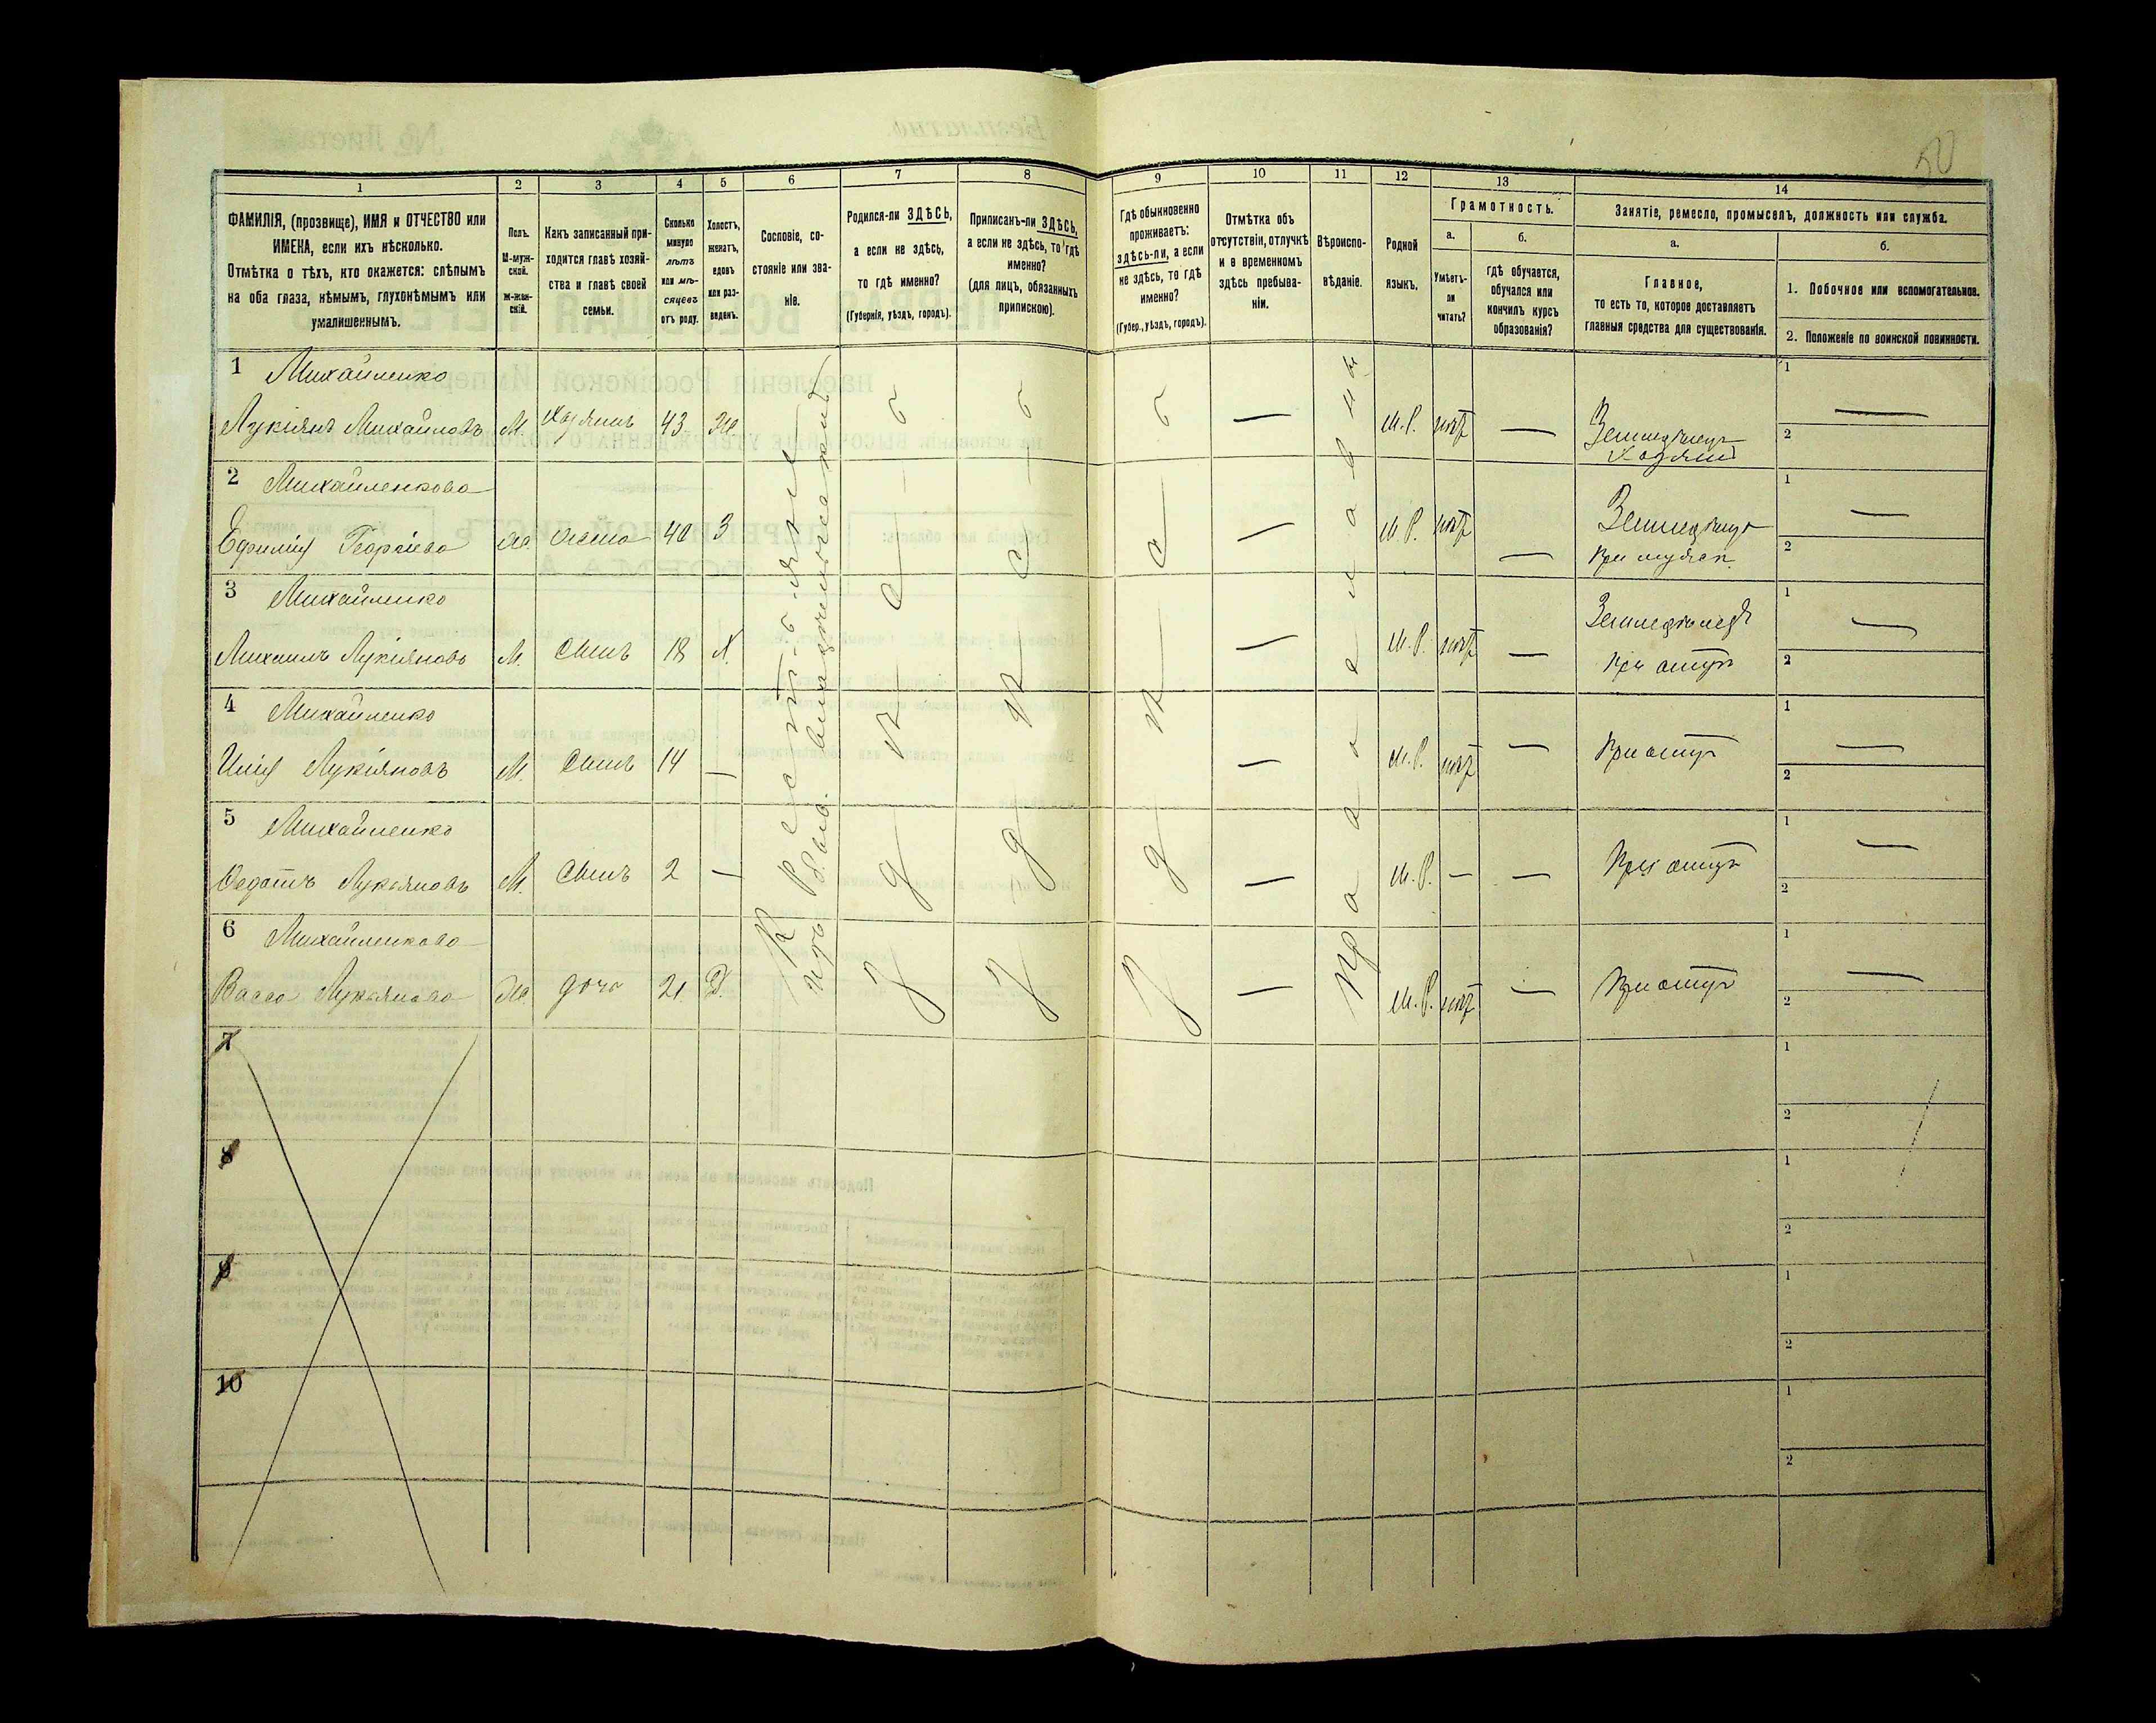 50
1 2 3 4 5 6 7 8 9 10 11 12 13 14
ФАМИЛІЯ, (прозвище), ИМЯ и ОТЧЕСТВО или
ИМЕНА, если ихъ нѣсколько.
Отмѣтка о тѣхъ, кто окажется: слѣпымъ
на оба глаза, нѣмымъ, глухонѣмымъ или
умалишеннымъ.
Полъ.
М-муж-
ской.
Ж-жен-
скій.
Какъ записанный при-
ходится главѣ хозяй-
ства и главѣ своей
семьи.
Сколько
минуло
лѣтъ
или мѣ-
сяцевъ
отъ роду.
Холостъ,
женатъ,
вдовъ
или раз-
веденъ.
Сословіе, со-
стояніе или зва-
ніе.
Родился-ли ЗДѢСЬ,
а если не здѣсь,
то гдѣ именно?
(Губернія, уѣздъ, городъ).
Приписанъ-ли ЗДѢСЬ,
а если не здѣсь, то гдѣ
именно?
(для лицъ, обязанныхъ
припискою).
Гдѣ обыкновенно
проживаетъ:
здѣсь-ли, а если
не здѣсь, то гдѣ
именно?
(Губер., уѣздъ, городъ).
Отмѣтка объ
отсутствіи, отлучкѣ
и о временномъ
здѣсь пребыва-
ніи.
Вѣроиспо-
вѣданіе.
Родной
языкъ.
Грамотность.
а.
Умѣетъ-
ли
читать?
б.
гдѣ обучается,
обучался или
кончилъ курсъ
образованія?
Занятіе, ремесло, промыселъ, должность или служба.
а.
Главное,
то есть то, которое доставляетъ
главныя средства для существованія.
б.
1. Побочное или вспомогательное.
2. Положеніе по воинской повинности.
1 Михайленко
Лукіянъ Михайловъ М. Хозяинъ 43 Ж — М.Р. нѣтъ — Земледѣлецъ
Хозяинъ
1 —
2
2 Михайленкова
Ефимія Георгіева Ж. жена 40 З — М.Р. нѣтъ — Земледѣлецъ
При мужѣ
1 —
2
3 Михайленко
Михаилъ Лукіяновъ М. Сынъ 18 Х. — М.Р. нѣтъ — Земледѣлецъ
При отцѣ
1 —
2
4 Михайленко
Илія Лукіяновъ М. Сынъ 14 — — М.Р. нѣтъ — При отцѣ
1 —
2
5 Михайленко
Федотъ Лукьяновъ М. Сынъ 2 — — М.Р. — — При отцѣ
1 —
2
6 Михайленкова
Васса Лукьянова Ж. дочь 21 Д. — М.Р. нѣтъ — При отцѣ
1 —
2
Крестьяне
изъ б. влад.
здѣсь
здѣсь
здѣсь
Православн
7
1
2
8
1
2
9
1
2
10
1
2